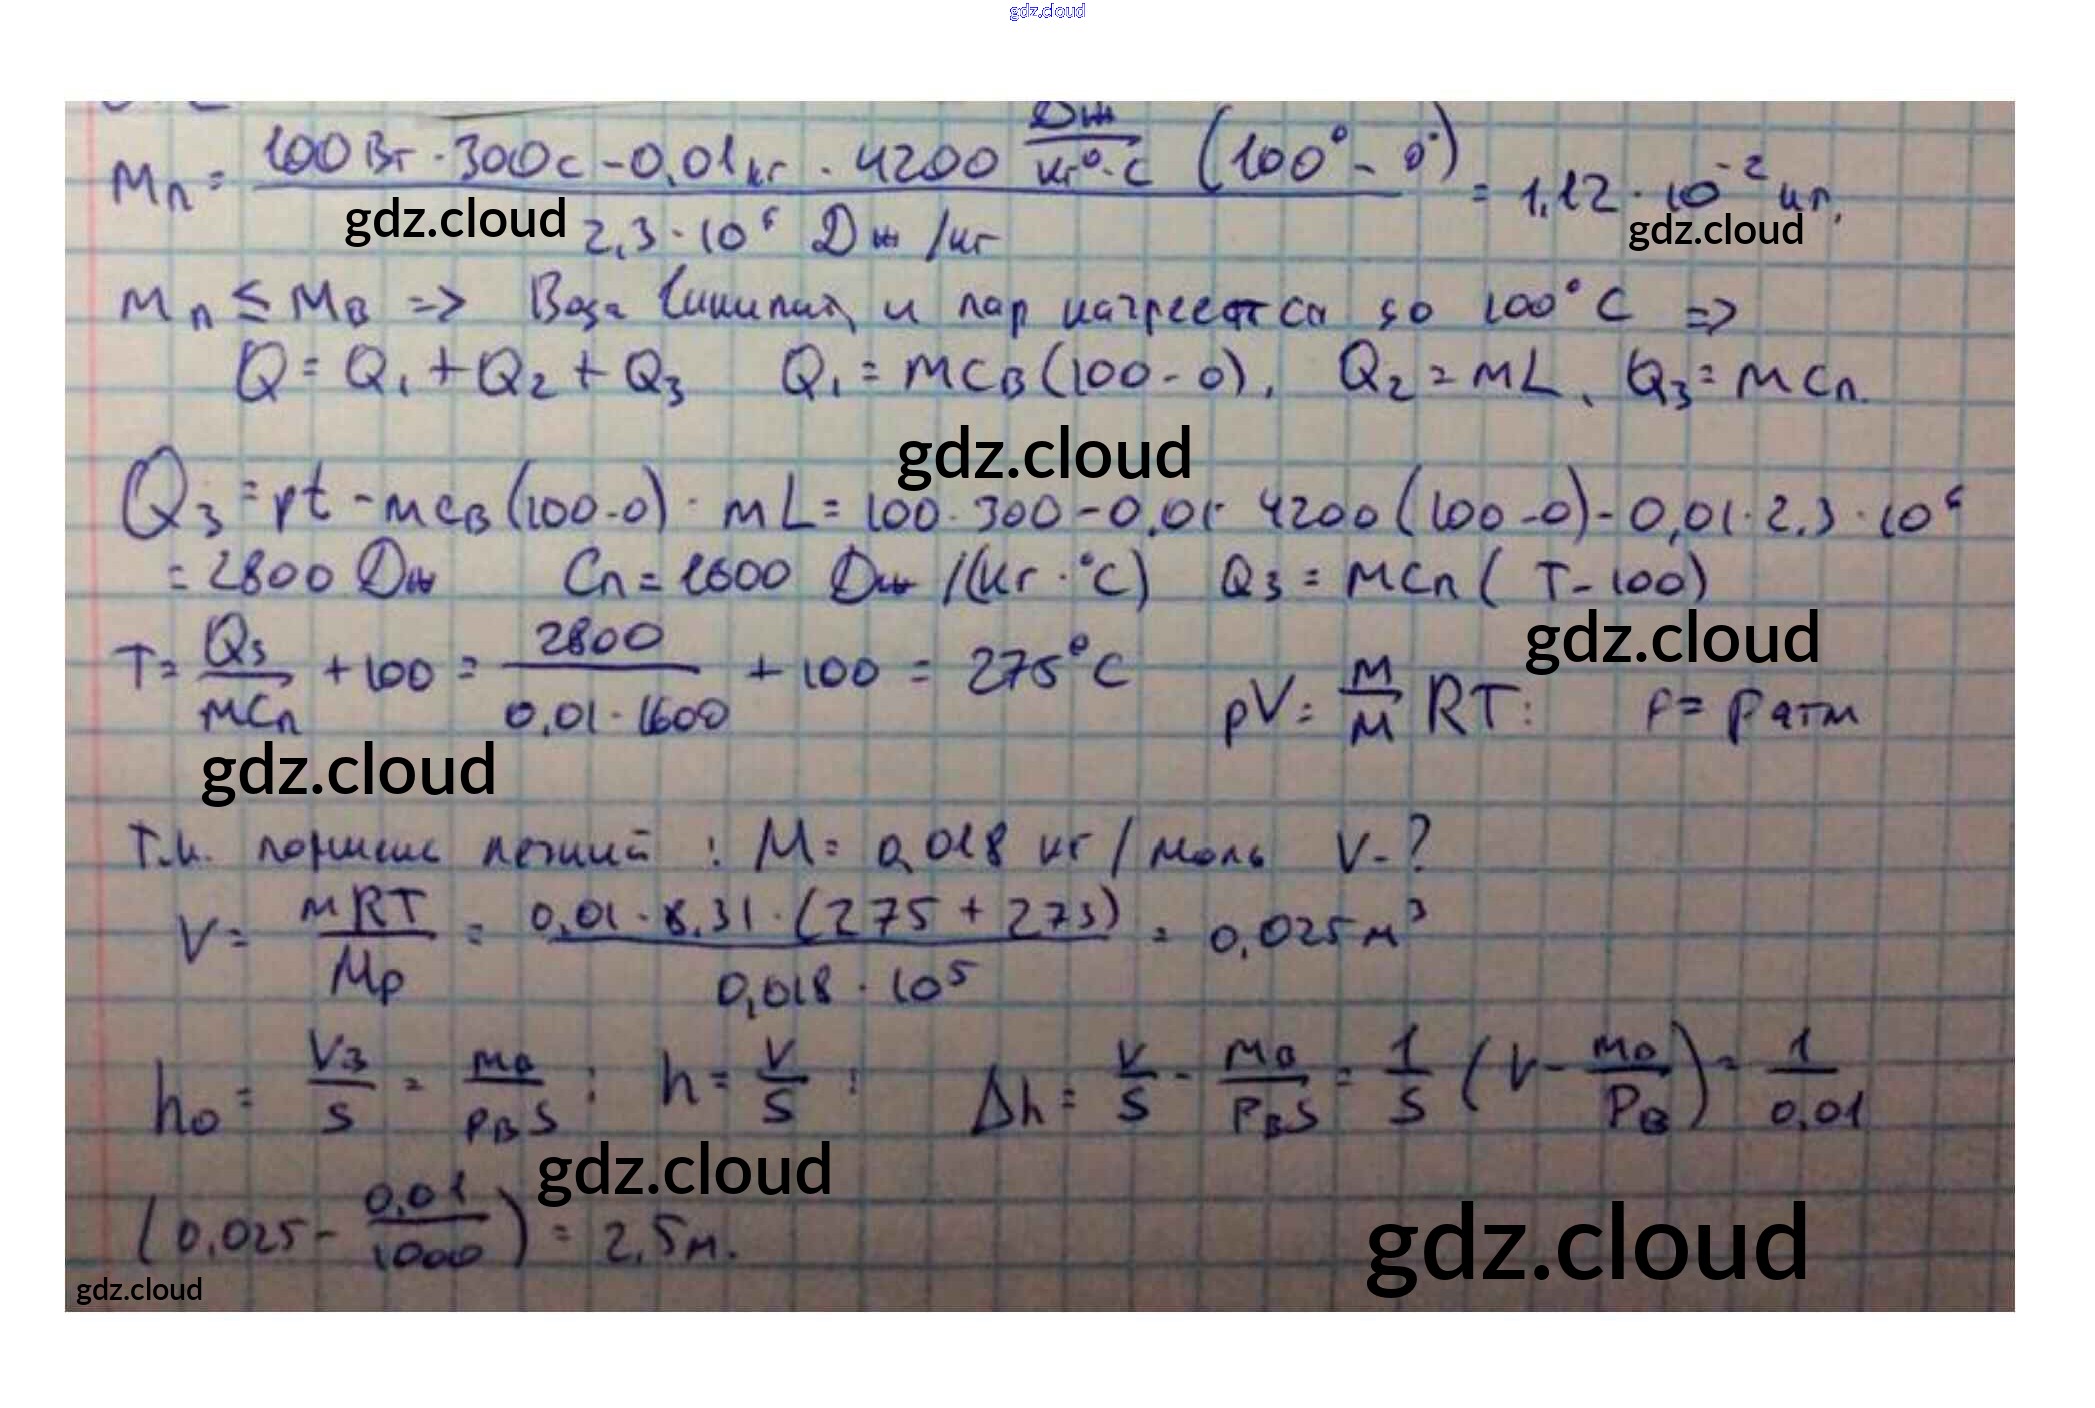 gdz.cloud
mп = (100Вт · 300с - 0,01кг · 4200 Дж/кг°·С (100° - 0°)) / (2,3 · 10⁶ Дж/кг) = 1,12 · 10⁻² кг,
gdz.cloud
gdz.cloud
mп ≤ mв => Вода и пар нагреется до 100°С =>
Q = Q₁ + Q₂ + Q₃ Q₁ = mcв(100-0), Q₂ = mL, Q₃ = mcп.
gdz.cloud
Q₃ = pt - mcв(100-0) - mL = 100·300 - 0,01· 4200(100-0) - 0,01·2,3·10⁶
= 2800 Дж Cп = 1600 Дж/(кг·°С) Q₃ = mcп( T-100)
gdz.cloud
T = Q₃/mcп + 100 = 2800/(0,01·1600) + 100 = 275°С pV = m/M RT: p = pатм
gdz.cloud
т.к. поршень легкий : M = 0,018 кг/моль V-?
V = mRT/Mp = 0,01·8,31·(275+273) / 0,018·10⁵ = 0,025м³
h₀ = Vз/S = mв/pвS ; h = V/S ; Δh = V/S - mв/pвS = 1/S (V - mв/pв) = 1/0,01
gdz.cloud
(0,025 - 0,01/1000) = 2,5м.
gdz.cloud
gdz.cloud